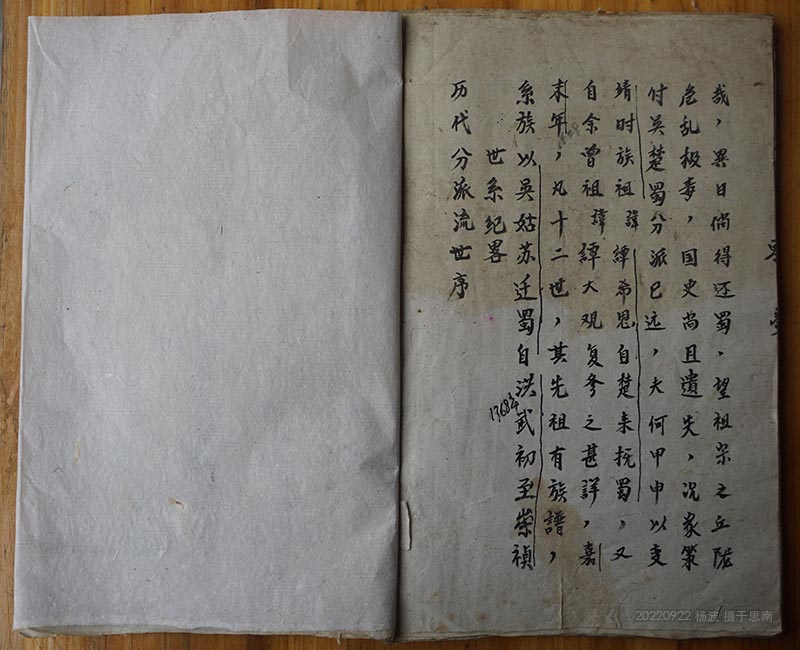 哉，異日倘得还蜀，望祖宗之丘陇
危乱极毒，国史尚且遺失，况家策
付吴楚蜀分派已远，夫何甲申以变
靖时族祖諱譚希思自楚来抚蜀，又
自余曾祖諱譚大观复参之甚詳，嘉
末年，凡十二世，其先祖有族譜，
系族以吳姑苏迁蜀自洪武初至崇禎
1368年
世系纪畧
历代分派流世序
20220922 杨波 摄于思南